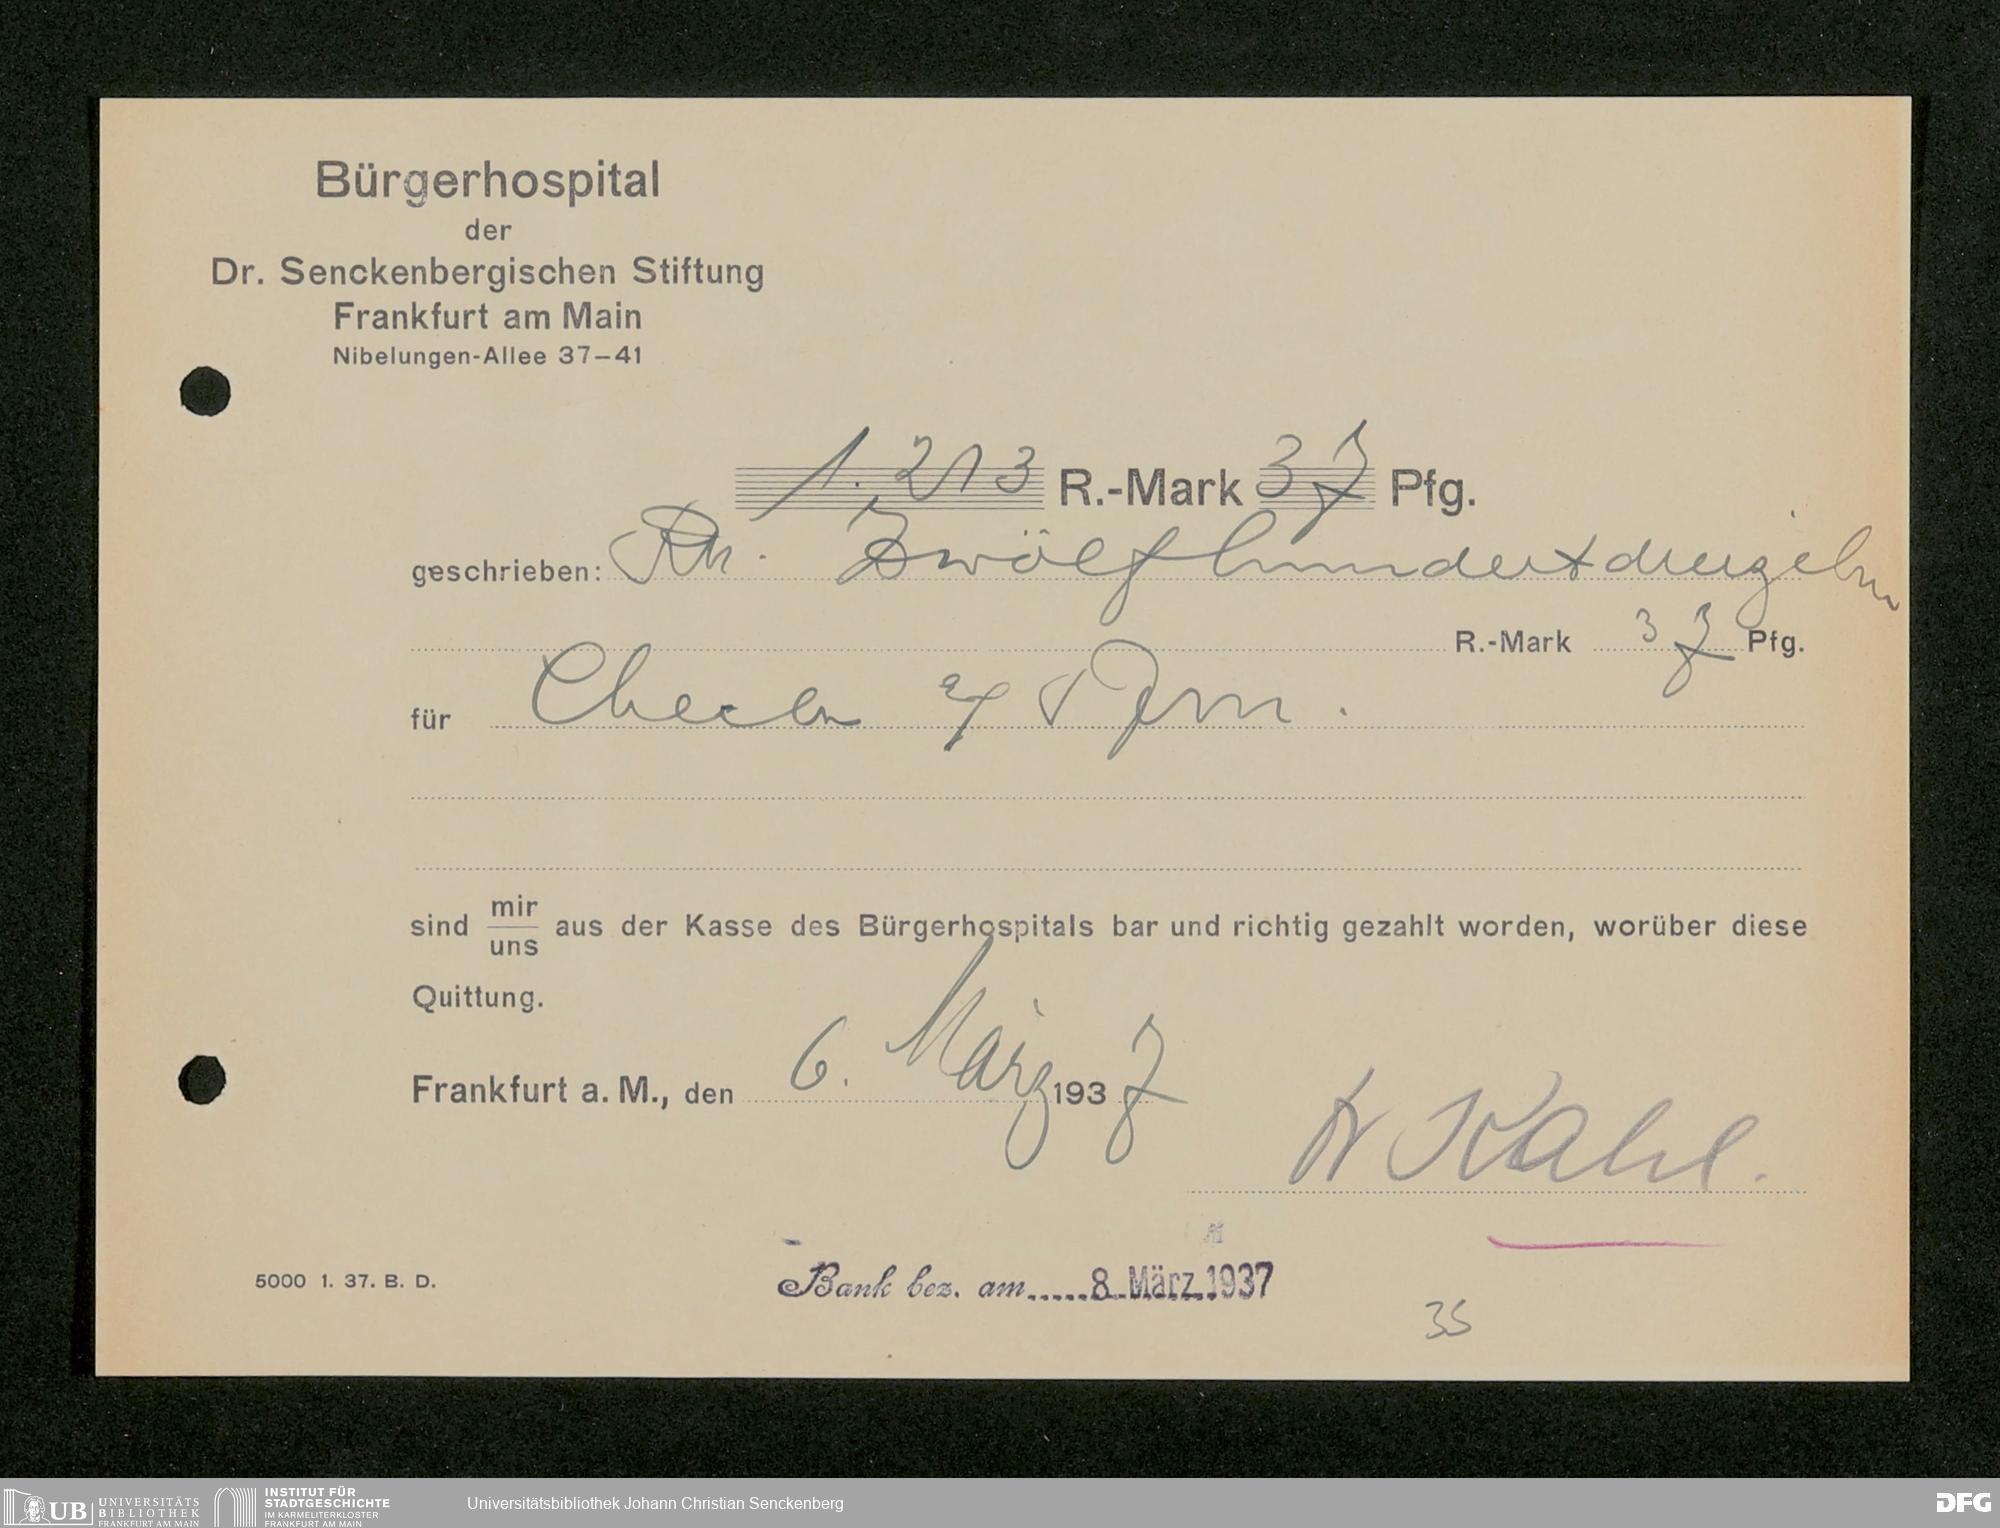 Bürgerhospital
der
Dr. Senckenbergischen Stiftung
Frankfurt am Main
Nibelungen-Allee 37–41
1.213 R.-Mark 37 Pfg.
geschrieben: Rm. Zwölfhundertdreizehn
R.-Mark 37 Pfg.
für Check
sind mir/uns aus der Kasse des Bürgerhospitals bar und richtig gezahlt worden, worüber diese
Quittung.
Frankfurt a. M., den 6. März 1937
Dr Kahl.
5000 1. 37. B. D.
Bank bez. am 8. März 1937
35
UB UNIVERSITÄTS
BIBLIOTHEK
FRANKFURT AM MAIN
INSTITUT FÜR
STADTGESCHICHTE
IM KARMELITERKLOSTER
FRANKFURT AM MAIN
Universitätsbibliothek Johann Christian Senckenberg
DFG